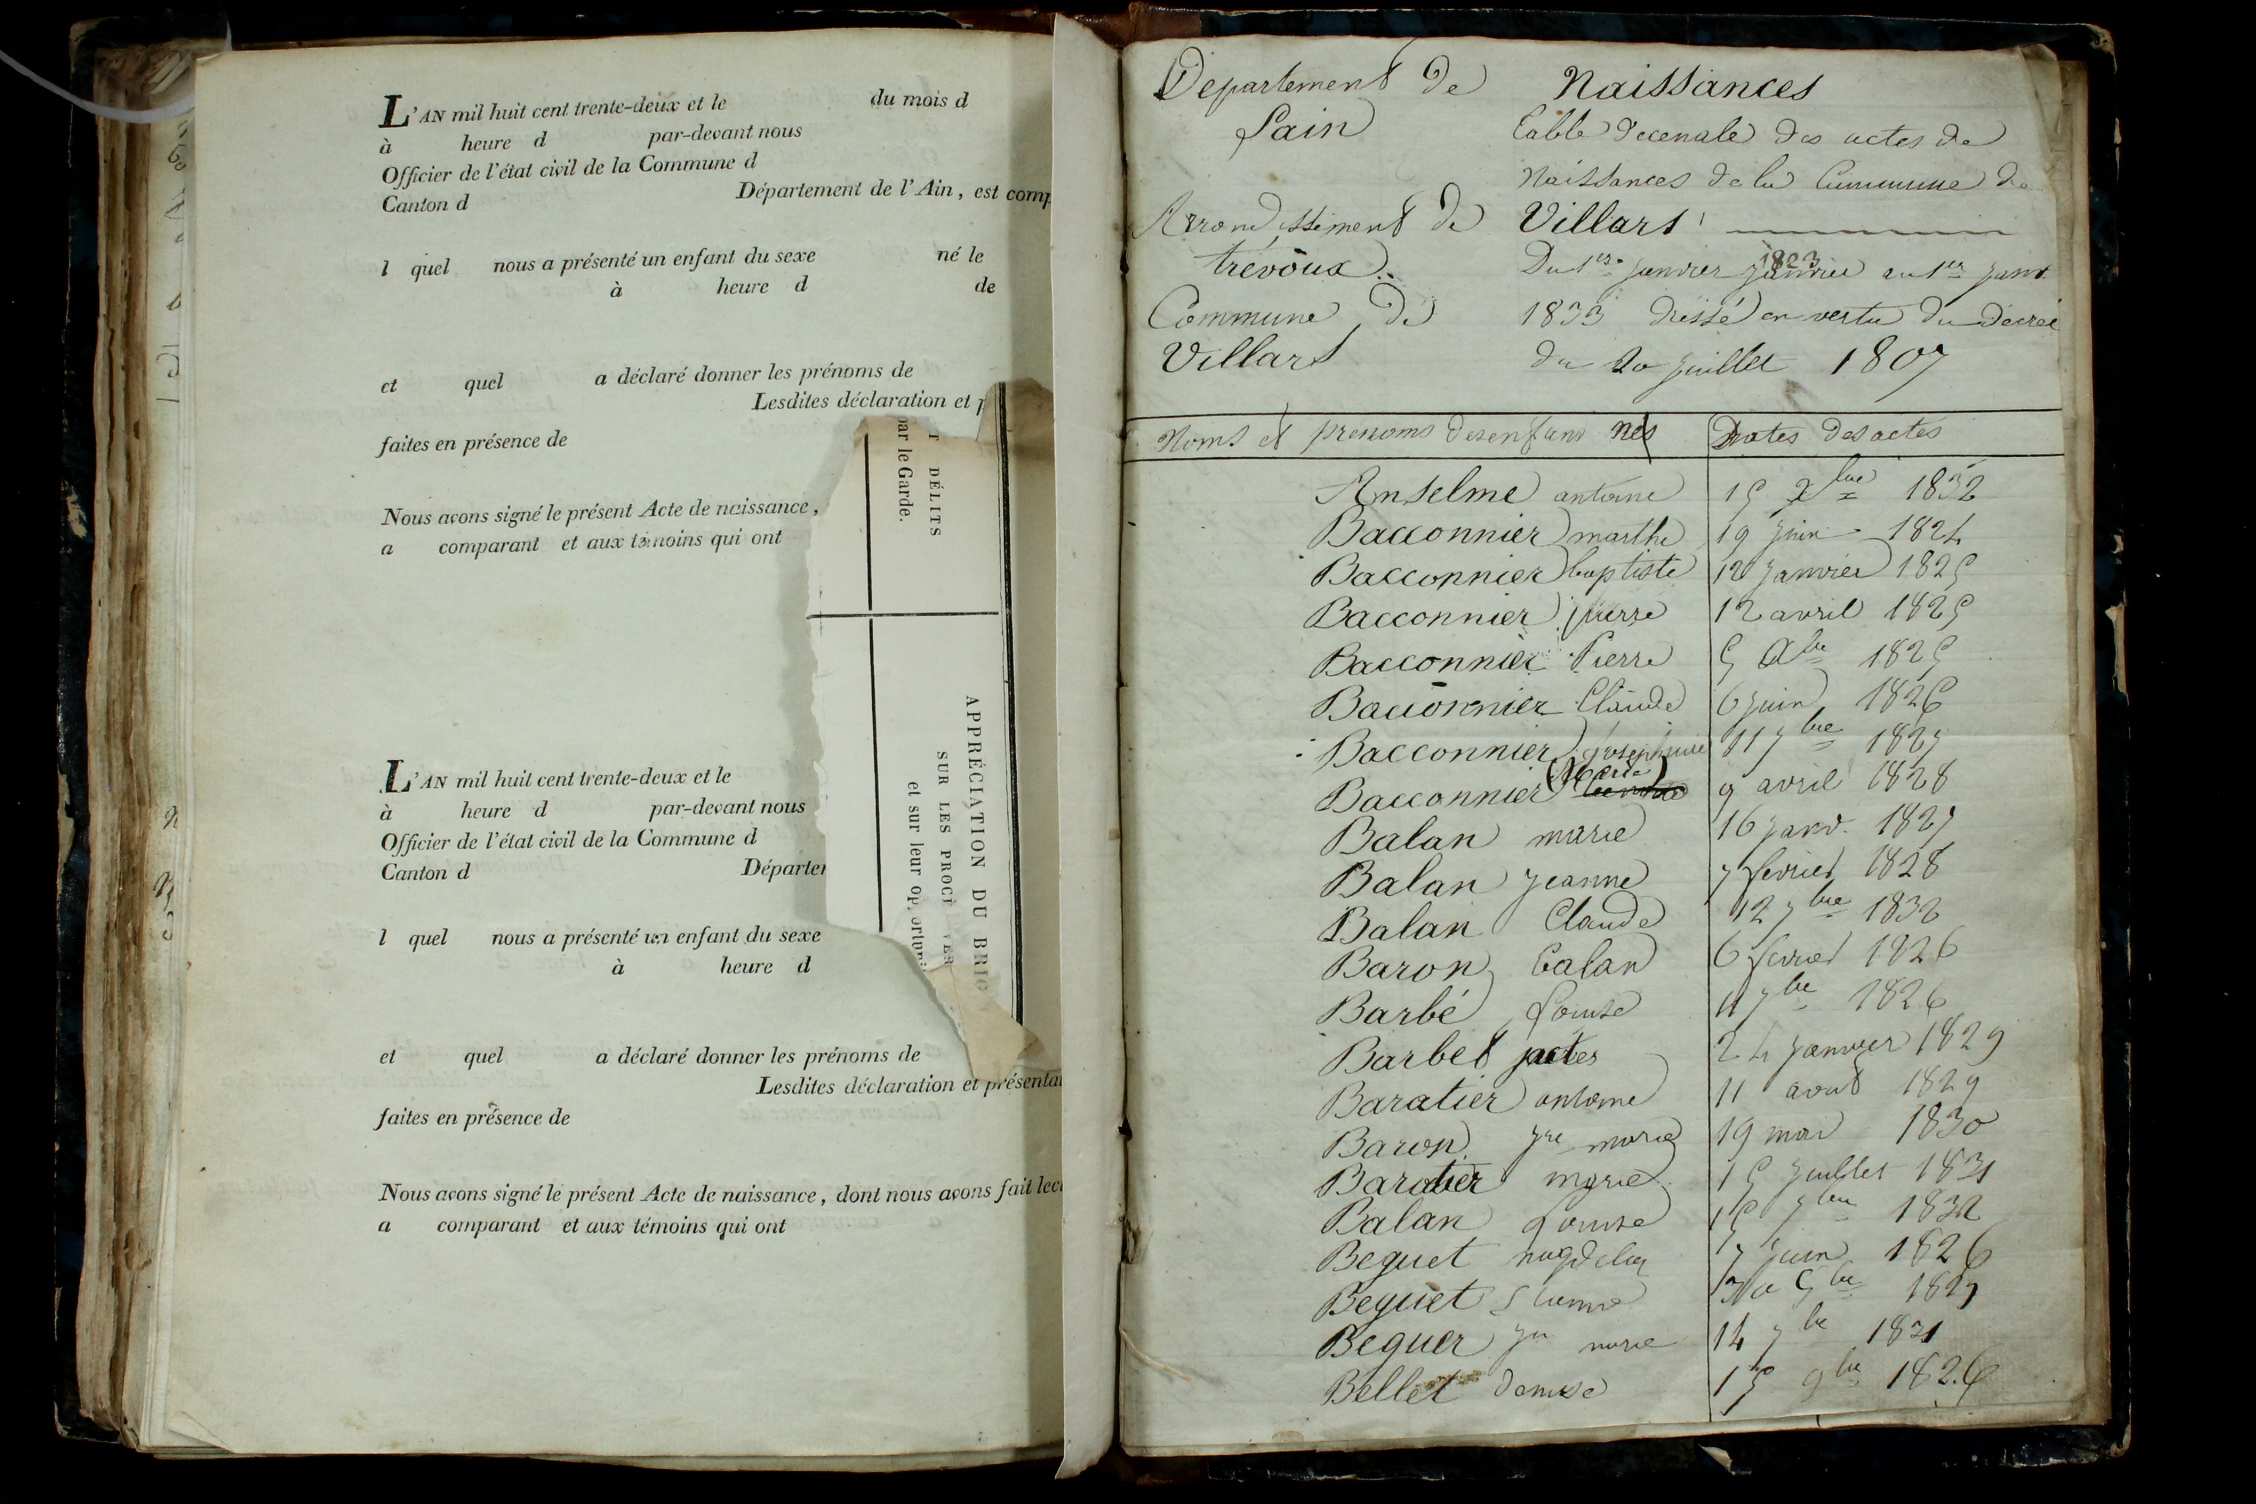 L'AN mil huit cent trente-deux et le du mois d
à heure d par-devant nous
Officier de l'état civil de la Commune d
Canton d Département de l'Ain, est comp
l quel nous a présenté un enfant du sexe né le
à heure d de
et quel a déclaré donner les prénoms de
Lesdites déclaration et p
faites en présence de
Nous avons signé le présent Acte de naissance,
a comparant et aux témoins qui ont
L'AN mil huit cent trente-deux et le
à heure d par-devant nous
Officier de l'état civil de la Commune d
Canton d Départe
l quel nous a présenté un enfant du sexe
à heure d
et quel a déclaré donner les prénoms de
Lesdites déclaration et présenta
faites en présence de
Nous avons signé le présent Acte de naissance, dont nous avons fait lec
a comparant et aux témoins qui ont
T DÉLITS
par le Garde.
APPRÉCIATION DU BRIG
SUR LES PROCÈ VER
et sur leur opportuni
Departement de
Lain
Arrondissement de
trévoux
Commune de
Villars
Naissances
table decenale des actes de
Naissances de la Commune de
Villars
Du 1er janvier 1823 janvier au 1er janv
1833 dressé en vertu du décret
du 20 juillet 1807
Noms et prenoms des enfans nés Dates des actes
Anselme antoine 15 xbre 1832
Bacconnier marthe 19 juin 1824
Bacconnier baptiste 12 janvier 1825
Bacconnier pierre 12 avril 1825
Bacconnier Pierre 5 1825
Bacconnier Claude 6 juin 1826
Bacconnier josephine 11 7bre 1827
Bacconnier (Marie) 9 avril 1828
Balan marie 16 janv. 1827
Balan jeanne 7 fevrier 1828
Balan Claude 12 7bre 1832
Baron 6 fevrier 1826
Barbé Louise 11 7bre 1826
Barbet 24 janvier 1829
Baratier antoine 11 aout 1829
Baron jne marie 19 mai 1830
Baratier marie 15 juillet 1831
Balan Louise 15 7bre 1832
Beguet 7 juin 1826
Beguet 1827
Beguer marie 14 7bre 1831
Bellet denise 15 9bre 1826